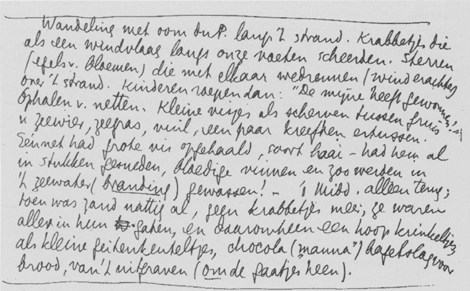 Wandeling met oom du P. langs 't strand. Krabbetjes die
als een windvlaag langs onze voeten scheerden. Sterren
(egels v. bloemen) die met elkaar wedrennen (wind erachter)
over 't strand. Kinderen roepen dan: "De mijne heeft gewonnen"
Ophalen v. netten. Kleine visjes als scherven tussen gruis
n zeewier, zeegras, vuil, een paar kreeften ertussen.
Een net had grote vis opgehaald, soort haai – had hem al
in stukken gesneden, bloedige vinnen en zoo werden in
't zeewater (branding) gewassen! – 's Midd. alleen terug;
toen was zand nattig al, geen krabbetjes meer; ze waren
allen in hun gaten, en daaromheen een hoop krinkeltjes
als kleine geitenkeuteltjes, chocola ("manna") hagelslag voor
brood, van 't uitgraven (om de gaatjes heen).